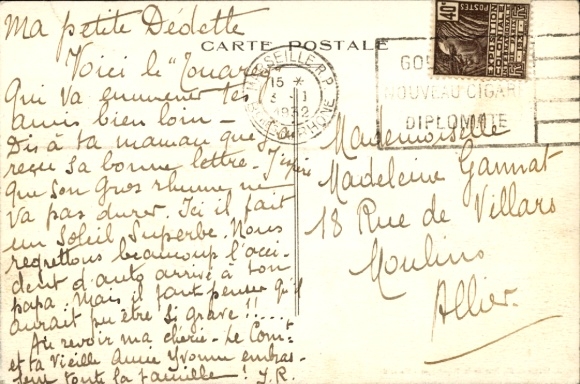 Ma petite Dédette
CARTE POSTALE
Voici le "Touareg
Qui va emmener tes
amis bien loin -
Dis à ta maman que j'ai
reçu sa bonne lettre - J'espère
que son gros rhume ne
va pas durer. Ici il fait
un Soleil Superbe. Nous
regrettons beaucoup l'acci-
dent d'auto arrivé à ton
papa. Mais il faut penser qu'il
aurait pu être si grave !! ....
Au revoir ma chérie - Le Comt
et ta vieille amie Yvonne embras-
sent toute la famille ! Y.R.
MARSEILLE R.P.
15 *
5 - 1
1932
BOUCHES DU RHONE
40c
POSTES
EXPOSITION
COLONIALE
INTERNATIONALE
PARIS 1931
NOUVEAU CIGARE
DIPLOMATE
Mademoiselle
Madeleine Gannat
18 Rue de Villars
Moulins
Allier